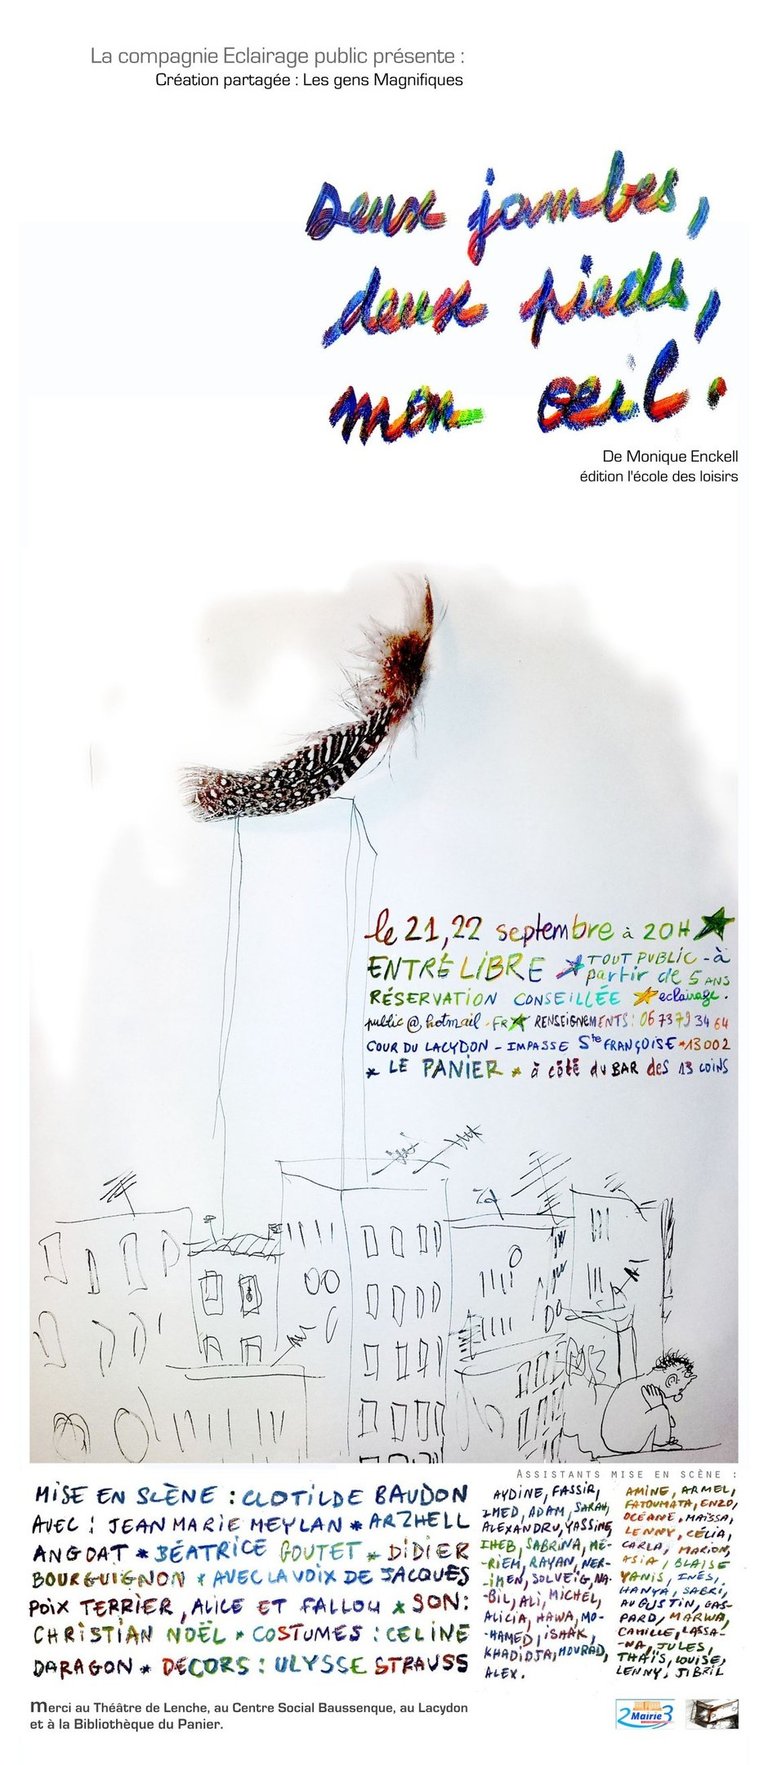 La compagnie Eclairage public présente :
Création partagée : Les gens Magnifiques
Deux jambes,
deux pieds,
mon œil.
De Monique Enckell
édition l'école des loisirs
le 21, 22 septembre à 20H
ENTRÉ LIBRE TOUT PUBLIC - à
partir de 5 ANS
RÉSERVATION CONSEILLÉE eclairage.
public@hotmail.FR RENSEIGNEMENTS : 06 73 79 34 64
COUR DU LACYDON - IMPASSE Ste FRANÇOISE * 13002
* LE PANIER * à côté du BAR des 13 coins
MISE EN SCÈNE : CLOTILDE BAUDON
AVEC : JEAN MARIE MEYLAN * ARZHELL
ANGOAT * BÉATRICE GOUTET * DIDIER
BOURGUIGNON * AVEC LA VOIX DE JACQUES
POIX TERRIER, ALICE ET FALLOU * SON :
CHRISTIAN NOËL * COSTUMES : CELINE
DARAGON * DECORS : ULYSSE STRAUSS
ASSISTANTS MISE EN SCÈNE :
AYDINE, FASSIR,
ZMED, ADAM, SARAH,
ALEXANDRU, YASSINE,
IHEB, SABRINA, ME-
-RIEM, RAYAN, NER-
-IMEN, SOLVEIG, NA-
-BIL, ALI, MICHEL,
ALICIA, HAWA, MO-
-HAMED, ISAAK,
KHADIDJA, MOURAD,
ALEX.
AMINE, ARMEL,
FATOUMATA, ENZO,
OCÉANE, MAÏSSA,
LENNY, CÉLIA,
CARLA, MARION,
ASIA, BLAISE
YANIS, INÈS,
HANYA, SABRI,
AUGUSTIN, GAS-
PARD, MARWA,
CAMILLE, LASSA-
-NA, JULES,
THAÏS, LOUISE,
LENNY, JIBRIL
merci au Théâtre de Lenche, au Centre Social Baussenque, au Lacydon
et à la Bibliothèque du Panier.
2 Mairie 3